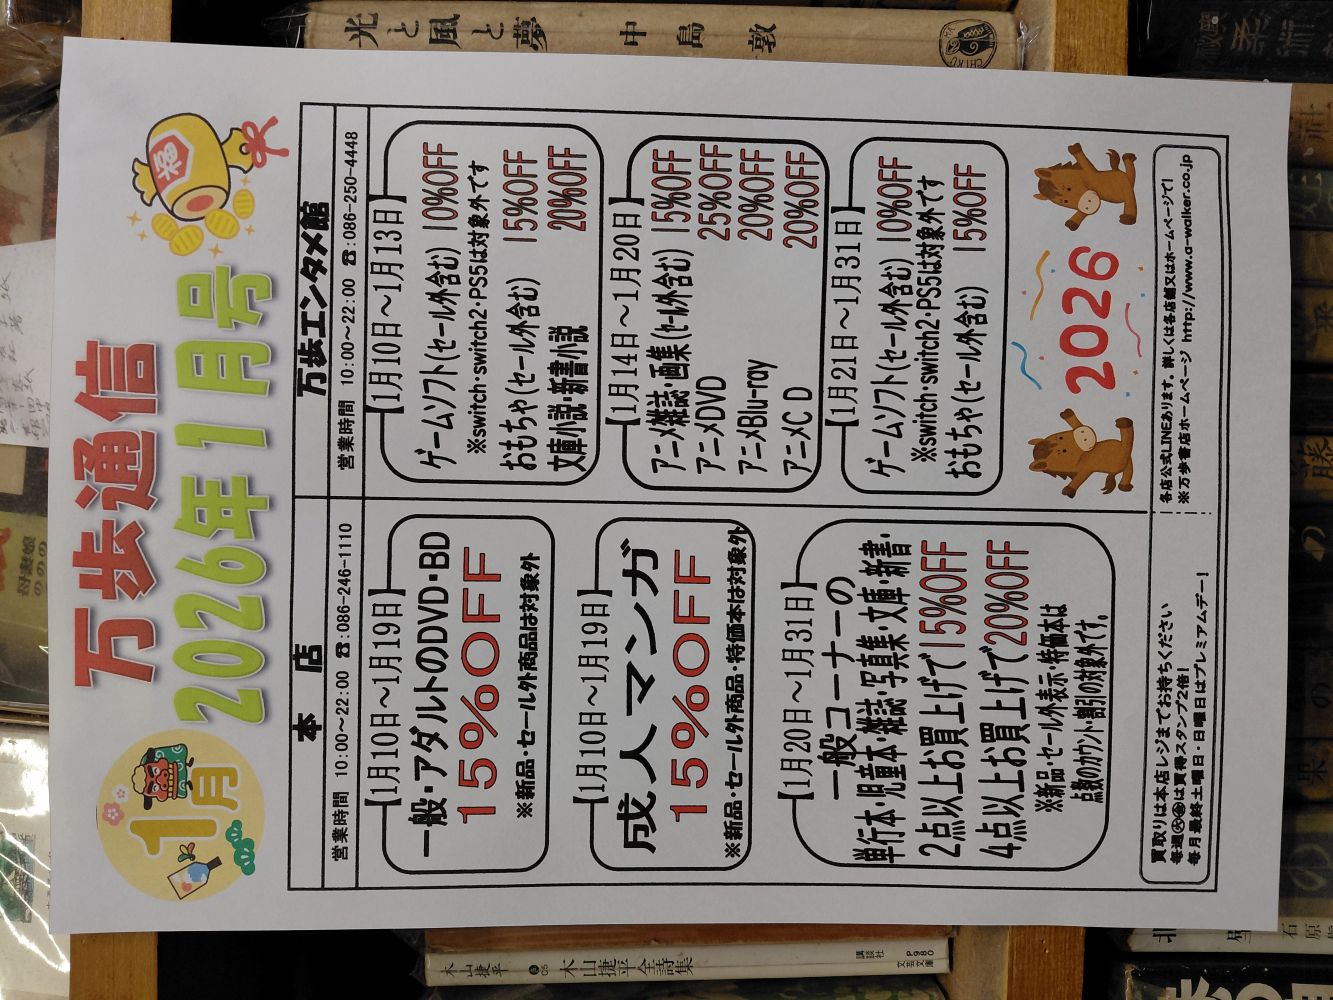 光と風と夢 中島敦
万歩通信
1月
2026年1月号
福
本店
営業時間 10:00～22:00 ☎:086-246-1110
【1月10日～1月19日】
一般・アダルトのDVD・BD
15%OFF
※新品・セール外商品は対象外
【1月10日～1月19日】
成人マンガ
15%OFF
※新品・セール外商品・特価本は対象外
【1月20日～1月31日】
一般コーナーの
単行本・児童本・雑誌・写真集・文庫・新書・
2点以上お買上げで15%OFF
4点以上お買上げで20%OFF
※新品・セール外表示・特価本は
点数のカウント割引の対象外です。
買取りは本店レジまでお持ちください
毎週㊋㊎は買得スタンプ2倍！
毎月最終土曜日・日曜日はプレミアムデー！
万歩エンタメ館
営業時間 10:00～22:00 ☎:086-250-4448
【1月10日～1月13日】
ゲームソフト(セール外含む) 10%OFF
※switch・switch2・PS5は対象外です
おもちゃ(セール外含む) 15%OFF
文庫小説・新書小説 20%OFF
【1月14日～1月20日】
アニメ雑誌・画集(セール外含む) 15%OFF
アニメDVD 25%OFF
アニメBlu-ray 20%OFF
アニメCD 20%OFF
【1月21日～1月31日】
ゲームソフト(セール外含む) 10%OFF
※switch・switch2・PS5は対象外です
おもちゃ(セール外含む) 15%OFF
2026
各店公式LINEあります。詳しくは各店舗又はホームページで！
※万歩書店ホームページ http://www.a-walker.co.jp
木山捷平
木山捷平全詩集
講談社
文芸文庫
P980
石原